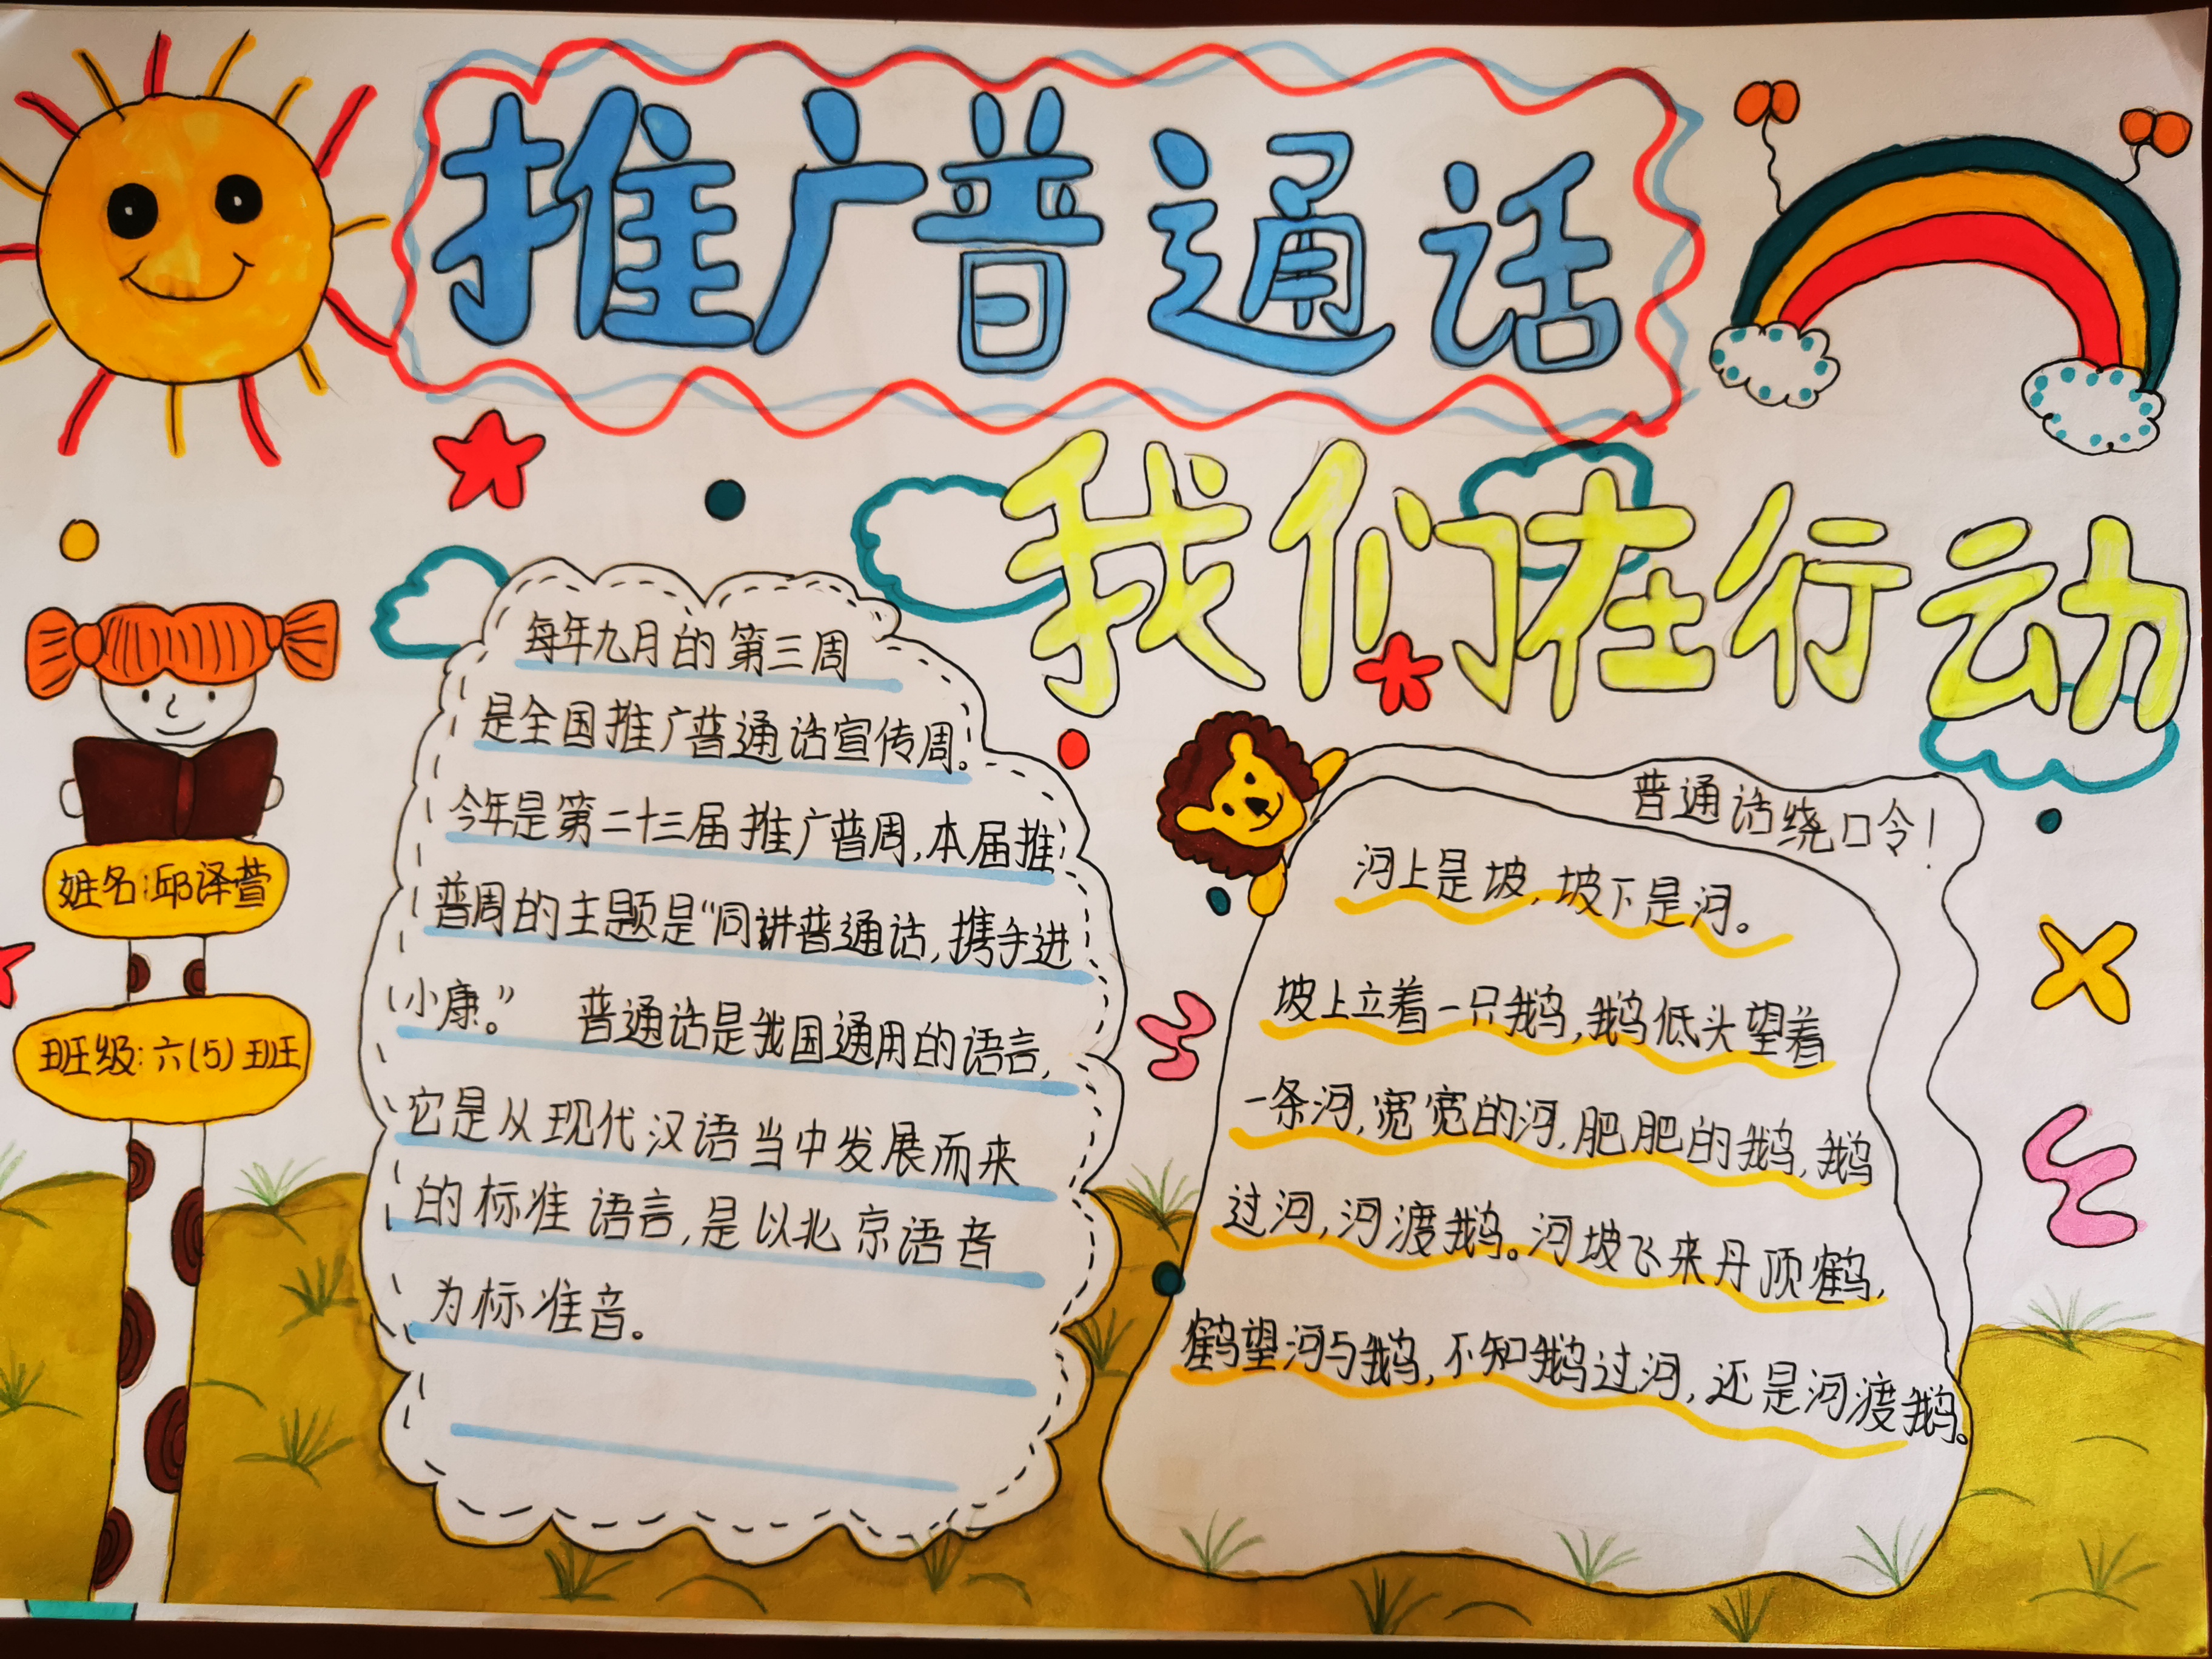 推广普通话
我们在行动
每年九月的第三周
是全国推广普通话宣传周。
今年是第二十三届推广普周,本届推
普周的主题是“同讲普通话,携手进
小康。” 普通话是我国通用的语言,
它是从现代汉语当中发展而来
的标准语言,是以北京语音
为标准音。
姓名:邱泽萱
班级:六(5)班
普通话绕口令!
河上是坡,坡下是河。
坡上立着一只鹅,鹅低头望着
一条河,宽宽的河,肥肥的鹅,鹅
过河,河渡鹅。河坡飞来丹顶鹤,
鹤望河与鹅,不知鹅过河,还是河渡鹅。